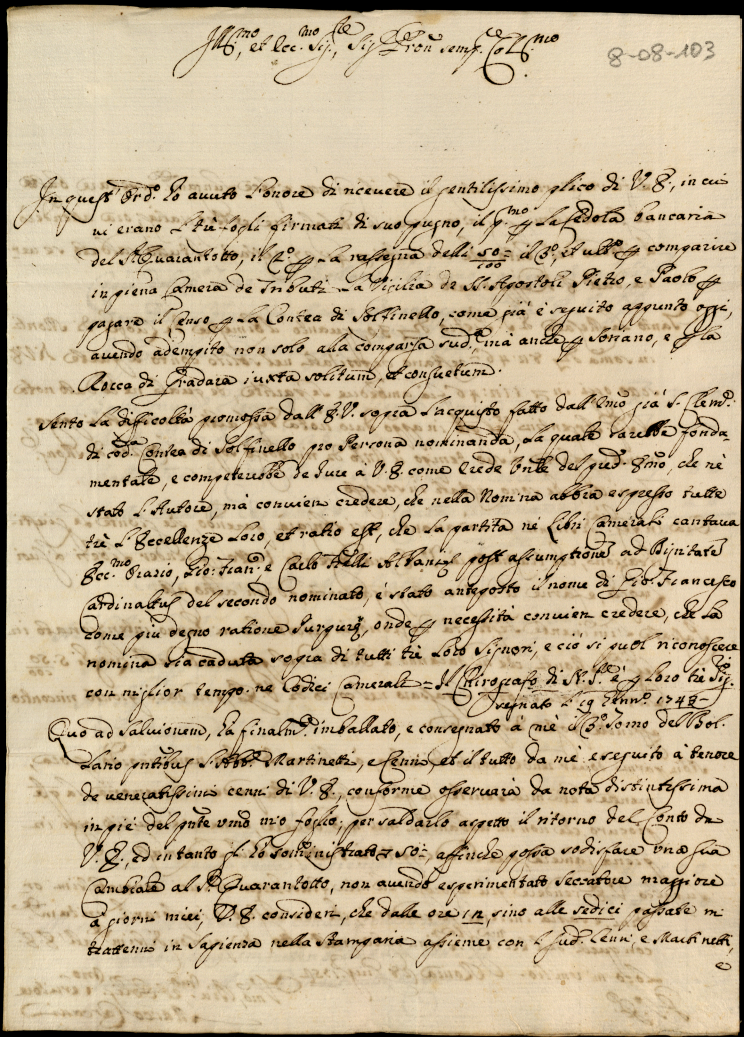 Ill.mo, et Ecc.mo Sig.re, Sig.re Pron semp.e Col.mo
8-08-103
In quest' Ord.o ho avuto l'onore di ricevere il gentilissimo plico di V. E., in cui
vi erano li trè fogli firmati di suo pugno, il p.mo p la Cedola bancaria
del S. Quarantotto, il 2.o p la rassegna delli 50 il 3.o, et ult.o p comparire
in piena Camera de Tributi la Vigilia de SS. Apostoli Pietro, e Paolo p
pagare il Censo p la Contea di Solfinello, come già è seguito appunto oggi,
avendo adempito non solo alla comparsa sud.a mà anche p Soriano, e p la
Rocca di Gradara iuxta solitum, et consuetum.
Sento la difficoltà promossa dall' E. V. sopra l'acquisto fatto dall' già S. Clem.e
di cod.a Contea di Solfinello pro Persona nominanda, la quale sarebbe fonda-
mentale, e competerebbe de Iure à V. E. come Erede del qud. Emo, che nè
stato l'Autore, mà convien credere, che nella Nomina abbia espresso tutte
trè l'Eccellenze Loro, et ratio est, che la partita nè Libri Camerali cantava
Ecc.mo Orazio, Gio: Fran.co e Carlo Frelli Albani, post assumptione ad Dignitate
Cardinalitiu del secondo nominato, è stato anteposto il nome di Gio: Francesco
come più degno ratione Purpure, onde p necessità convien credere, che la
nomina sia caduta sopra di tutti trè Loro Signori, e ciò si puol riconoscere
con miglior tempo ne Codici Camerali = Il Chirografo di N. S.re è p Loro trè Sig.ri
segnato li 19 Genn.o 1743
Quo ad salvionem, hà finalm.e imballato, e consegnato à mè il 3.o Tomo del Bol-
lario pntibus S. Abb.e Martinetti, e Cenni, et il tutto da mè eseguito à tenore
de veneratissimi cenni di V. E., conforme osserverà da nota distintissima
in piè del pnte umo mio foglio; per saldarlo aspetto il ritorno del Conto da
V. E., ed intanto hò somministrato 50, affinche possa sodisfare una sua
Cambiale al S.r Quarantotto, non avendo esperimentato seccatore maggiore
à giorni miei, V. E. consideri, che dalle ore 12, sino alle sedici passate m
trattenni in Sapienza nella Stamparia assieme con li sud.i Cenni, e Martinetti,
e